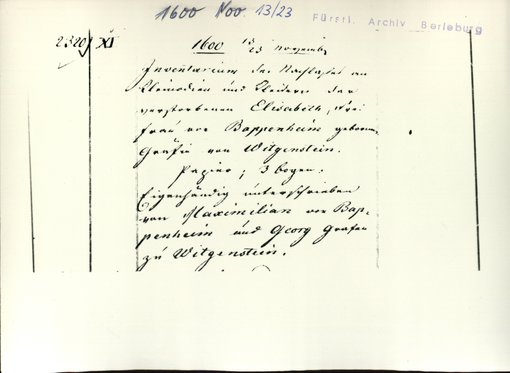 1600 Nov. 13/23
Fürstl. Archiv Berleburg
2320/XI
1600 13/23 November
Inventarium des Nachlasses an
Kleinodien und Kleidern der
verstorbenen Elisabeth, Frei
frau von Bappenheim geboren.
Gräfin von Witgenstein.
Papier, 3 bogen.
Eigenhändig unterschrieben
von Maximilian von Bap-
penheim und Georg Grafen
zu Witgenstein.